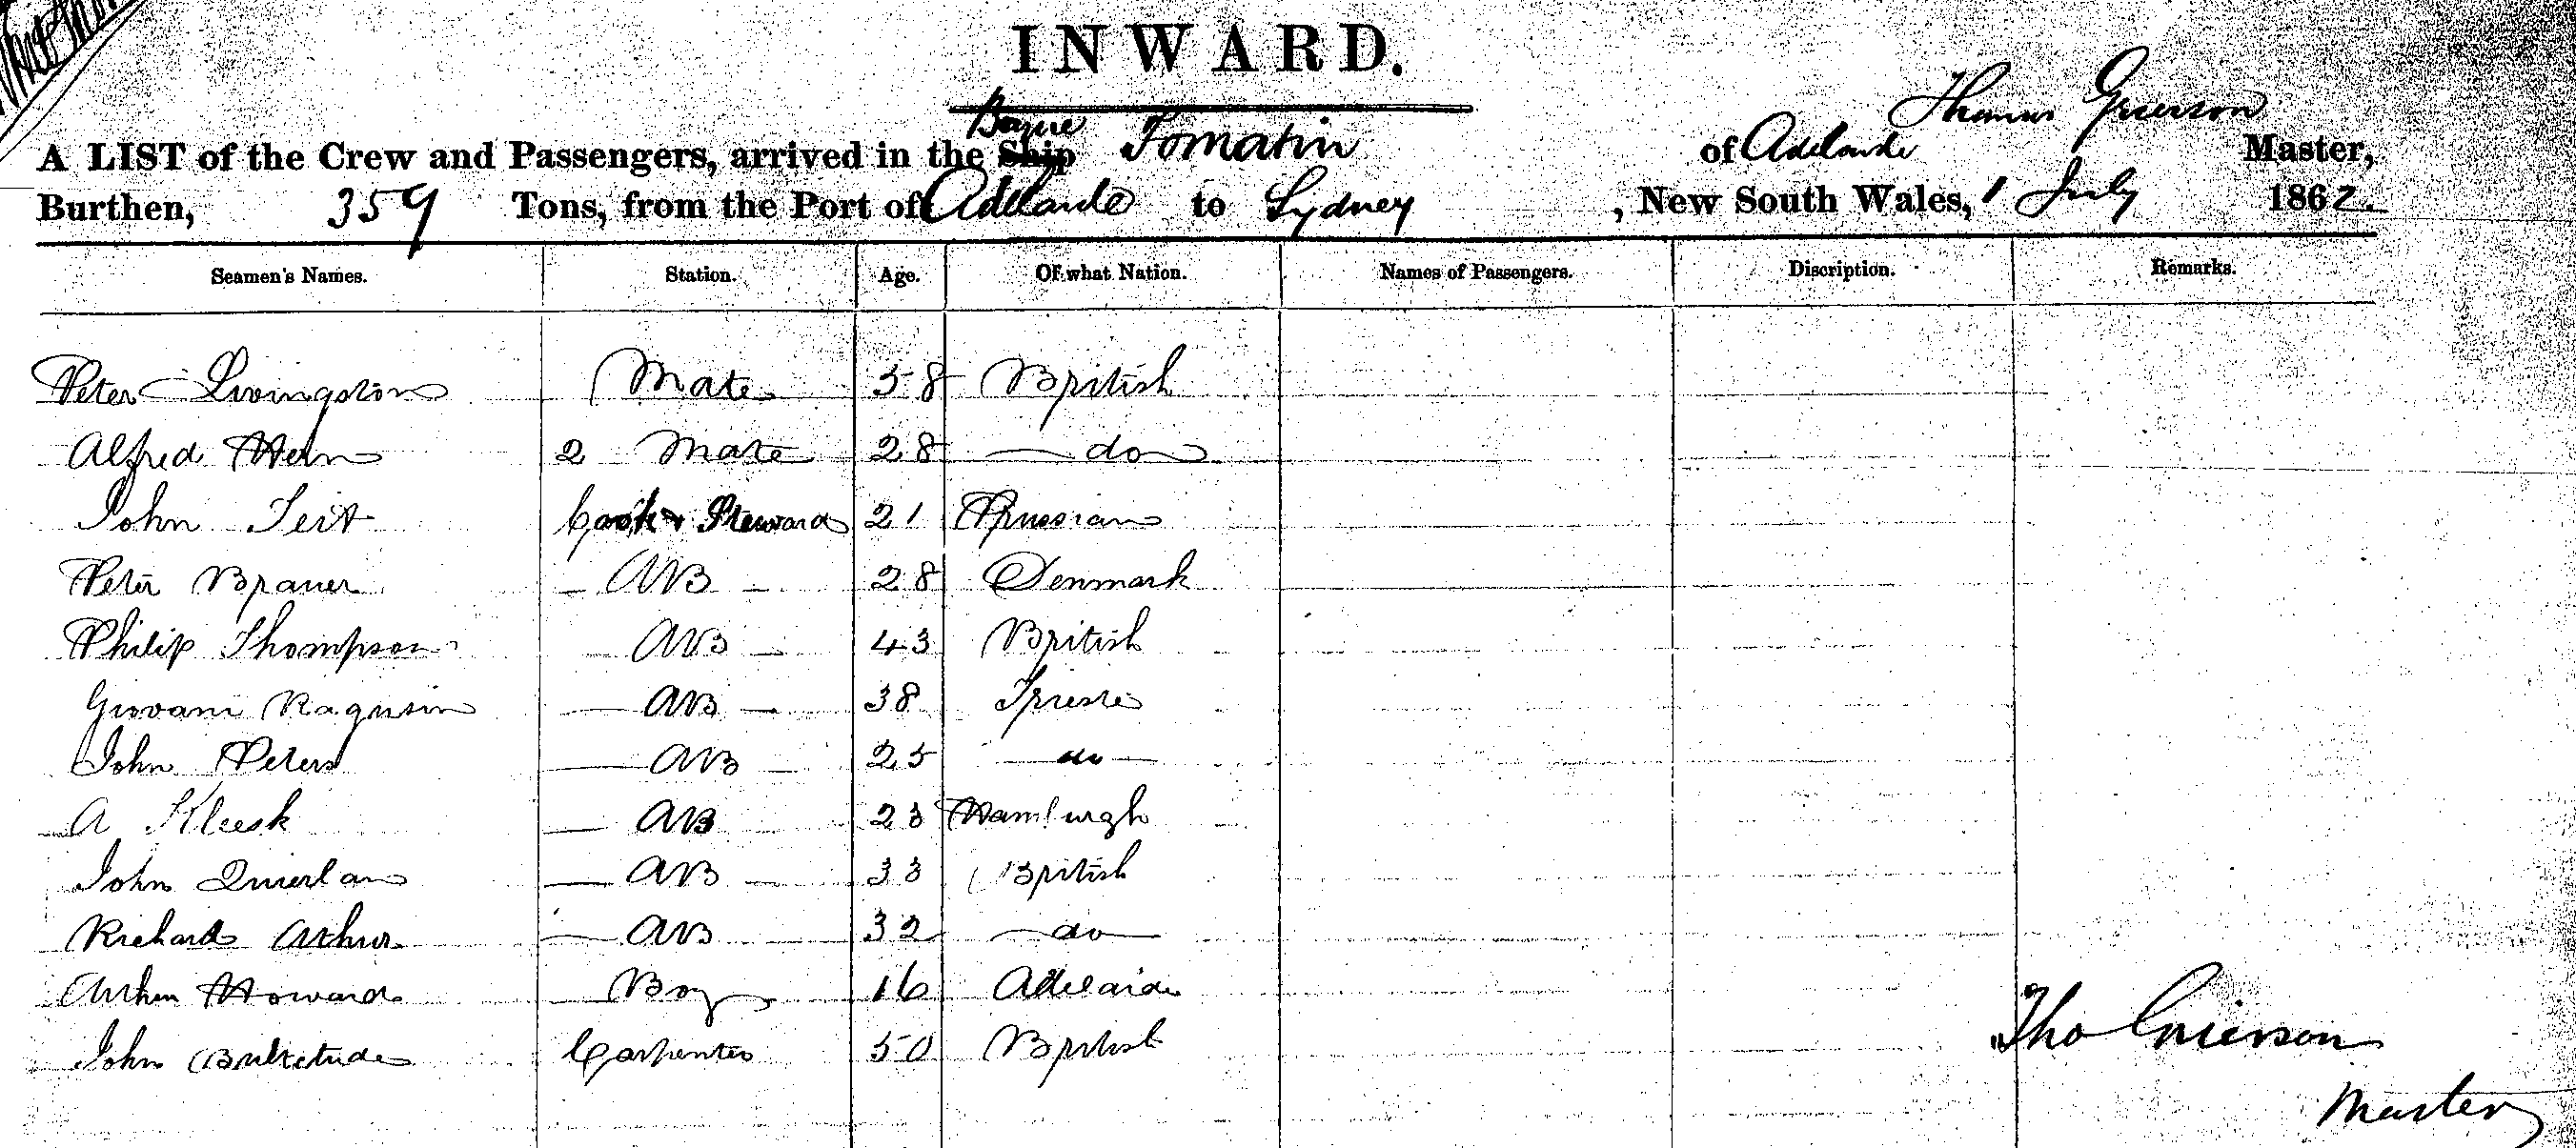 INWARD.
Thomas Grierson
Barque
A LIST of the Crew and Passengers, arrived in the Ship Tomatin of Adelaide Master,
Burthen, 359 Tons, from the Port of Adelaide to Sydney, New South Wales, 1 July 1862.
Seamen's Names. Station. Age. Of what Nation. Names of Passengers. Discription. Remarks.
Peter Livingston Mate 58 British
Alfred 2 Mate 28 do
John Cook & Steward 21 Prussian
Peter Brauer AB 28 Denmark
Philip Thompson AB 43 British
Giovani Ragusin AB 38 Trieste
John Peters AB 25 do
A Kleesk AB 23 Hamburgh
John AB 33 British
Richard Arthur AB 32 do
Arthur Howard Boy 16 Adelaide
John Bultitude Carpenter 50 British
Tho Grierson
Master